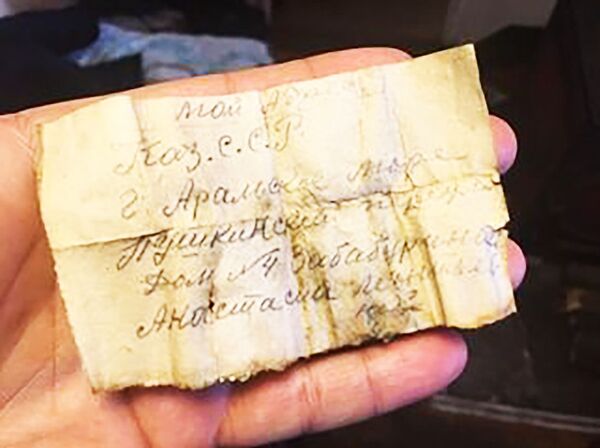 Мой адрес
Каз.С.С.Р
г Аральское море
Пушкинский
Дом № 4 Забабурина
Анастасии